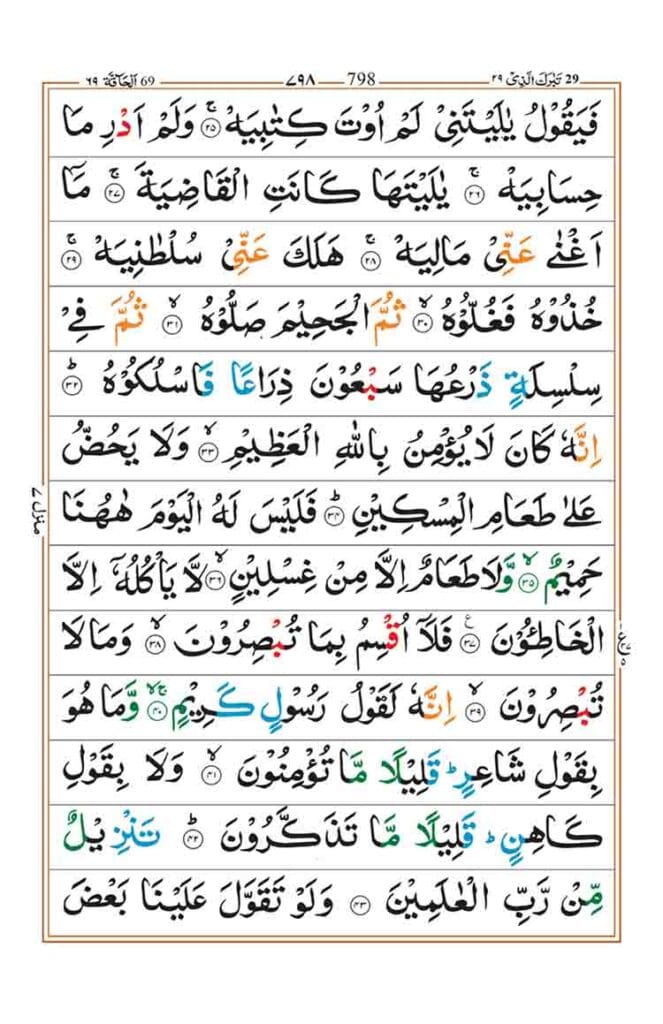 29 تَبٰرَكَ الَّذِىْ ٢٩ 798 ٧٩٨ 69 اَلْحَآقَّة ٦٩
فَيَقُوْلُ يٰلَيْتَنِىْ لَمْ اُوْتَ كِتٰبِيَهْ ۚ‏﴿۲۵﴾ وَلَمْ اَدْرِ مَا
حِسَابِيَهْ ۚ‏﴿۲۶﴾ يٰلَيْتَهَا كَانَتِ الْقَاضِيَةَ ۚ‏﴿۲۷﴾ مَاۤ
اَغْنٰى عَنِّىْ مَالِيَهْ ۚ‏﴿۲۸﴾ هَلَكَ عَنِّىْ سُلْطٰنِيَهْ ۚ‏﴿۲۹﴾
خُذُوْهُ فَغُلُّوْهُ ۙ‏﴿۳۰﴾ ثُمَّ الْجَحِيْمَ صَلُّوْهُ ۙ‏﴿۳۱﴾ ثُمَّ فِىْ
سِلْسِلَةٍ ذَرْعُهَا سَبْعُوْنَ ذِرَاعًا فَاسْلُكُوْهُ ؕ‏﴿۳۲﴾
اِنَّهٗ كَانَ لَا يُؤْمِنُ بِاللّٰهِ الْعَظِيْمِ ۙ‏﴿۳۳﴾ وَلَا يَحُضُّ
عَلٰى طَعَامِ الْمِسْكِيْنِ ؕ‏﴿۳۴﴾ فَلَيْسَ لَهُ الْيَوْمَ هٰهُنَا
حَمِيْمٌ ۙ‏﴿۳۵﴾ وَّلَا طَعَامٌ اِلَّا مِنْ غِسْلِيْنٍ ۙ‏﴿۳۶﴾ لَّا يَاْكُلُهٗۤ اِلَّا
الْخَاطِئُوْنَ ع‏﴿۳۷﴾ فَلَاۤ اُقْسِمُ بِمَا تُبْصِرُوْنَ ۙ‏﴿۳۸﴾ وَمَا لَا
تُبْصِرُوْنَ ۙ‏﴿۳۹﴾ اِنَّهٗ لَقَوْلُ رَسُوْلٍ كَرِيْمٍ ۚۙ‏﴿۴۰﴾ وَّمَا هُوَ
بِقَوْلِ شَاعِرٍ ؕ قَلِيْلًا مَّا تُؤْمِنُوْنَ ۙ‏﴿۴۱﴾ وَلَا بِقَوْلِ
كَاهِنٍ ؕ قَلِيْلًا مَّا تَذَكَّرُوْنَ ؕ‏﴿۴۲﴾ تَنْزِيْلٌ
مِّنْ رَّبِّ الْعٰلَمِيْنَ ‏﴿۴۳﴾ وَلَوْ تَقَوَّلَ عَلَيْنَا بَعْضَ
منزل ٧